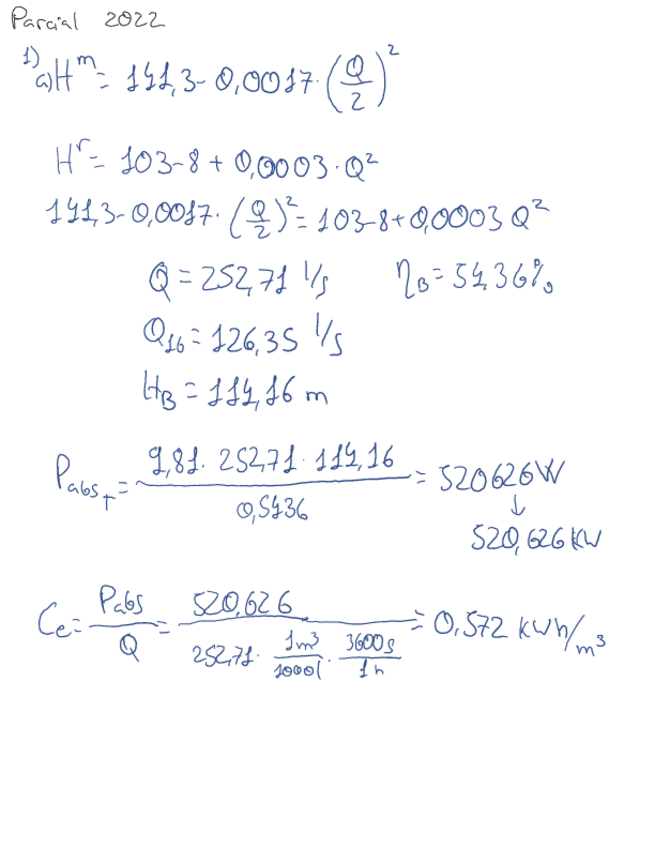 Parcial 2022
1)
a) H^m = 141,3 - 0,0017 · (Q/2)^2
H^r = 103-8 + 0,0003 · Q^2
141,3 - 0,0017 · (Q/2)^2 = 103-8 + 0,0003 Q^2
Q = 252,71 l/s η_B = 54,36%
Q_1b = 126,35 l/s
H_B = 114,16 m
P_abs_T = 9,81 · 252,71 · 114,16 / 0,5436 = 520626 W
↓
520,626 KW
Ce = Pabs / Q = 520,626 / 252,71 · 1m^3/1000l · 3600s/1h = 0,572 kWh/m^3